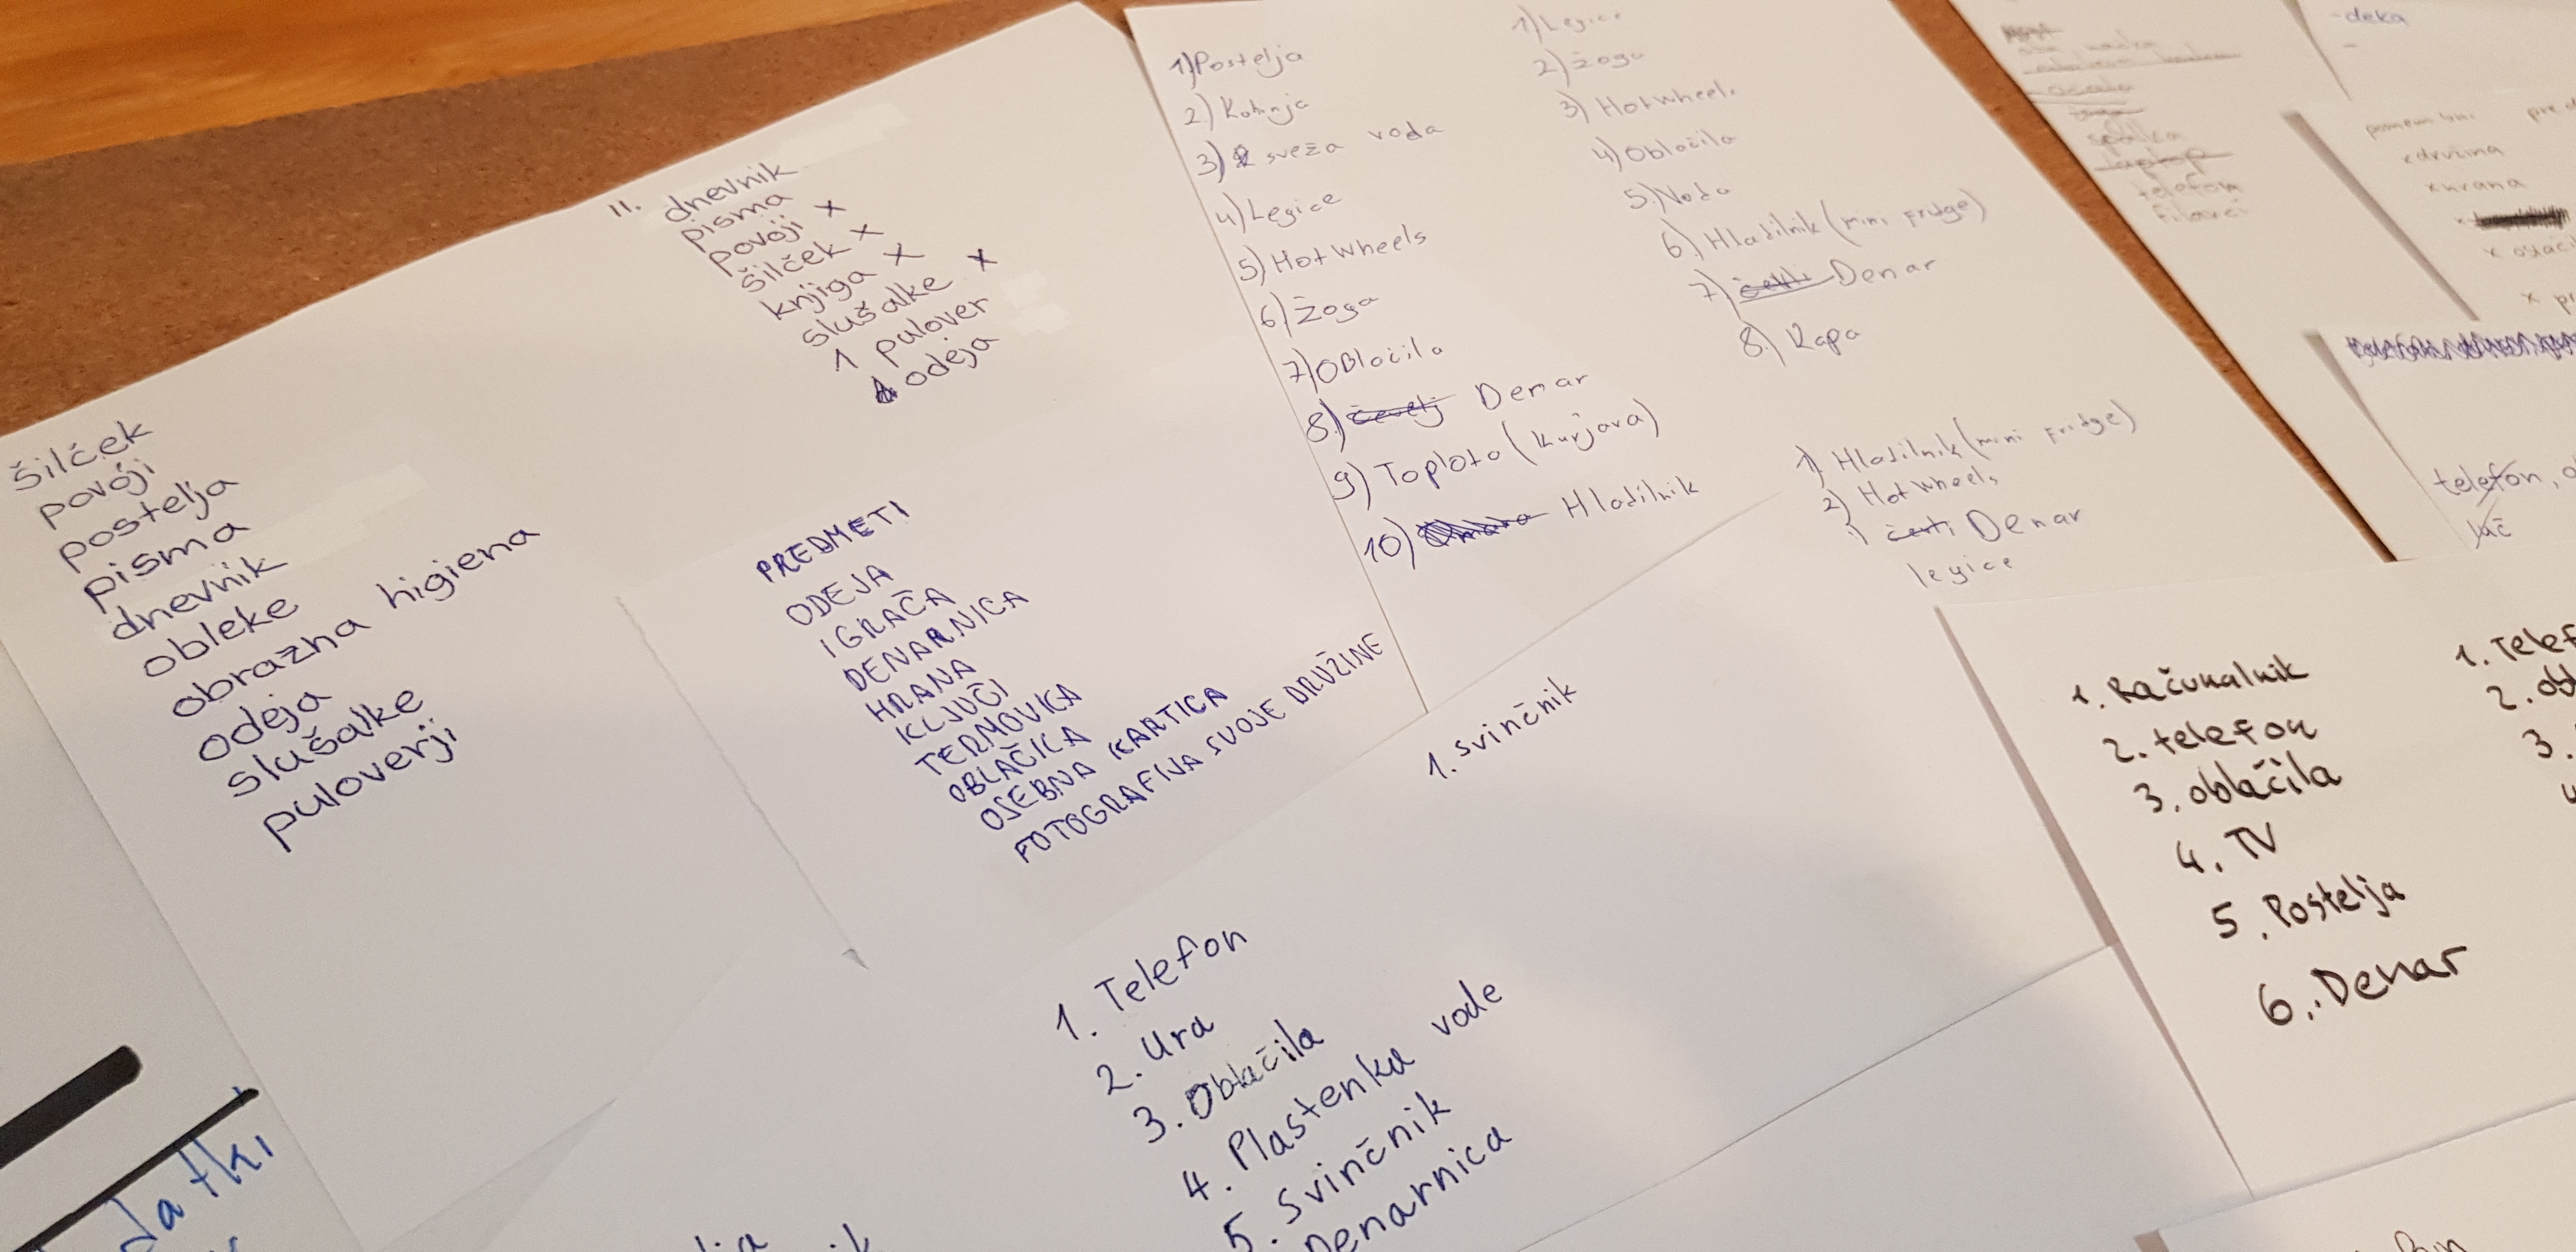 šilček
povoji
postelja
pisma
dnevnik
obleke
obrazna higiena
odeja
slušalke
puloverji
11.
dnevnik
pisma
povoji x
šilček x
knjiga x
slušalke x
1 pulover
odeja
PREDMETI
ODEJA
IGRAČA
DENARNICA
HRANA
KLJUČI
TERMOVKA
OBLAČILA
OSEBNA KARTICA
FOTOGRAFIJA SVOJE DRUŽINE
1) Postelja
2) Kuhinja
3) sveža voda
4) Legice
5) Hot wheels
6) Žoga
7) Obločila
8) čevelj Denar
9) Toploto (kurjava)
10) Hladilnik
1) Legice
2) Žoga
3) Hot wheels
4) Obločila
5) Voda
6) Hladilnik (mini fridge)
7) Denar
8) Kapa
1) Hladilnik (mini fridge)
2) Hot wheels
Denar
legice
telefon
-deka
-
x družina
x hrana
telefon,
1. Računalnik
2. telefon
3. oblačila
4. TV
5. Postelja
6. Denar
1. Telef
2. ob
3.
1. svinčnik
1. Telefon
2. Ura
3. Oblačila
4. Plastenka vode
5. Svinčnik
Denarnica
datki